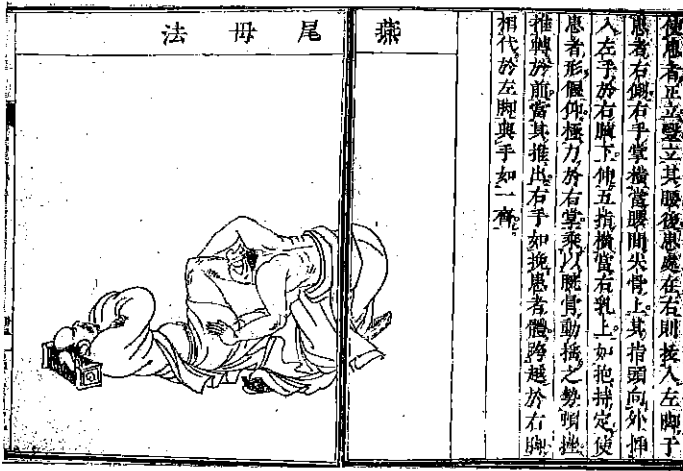 使患者正立豎立其腰後患處在右則挨入左脚于
患者右側右手掌橫當腰間尖骨上其指頭向外伸
入左手於右腋下伸五指橫當右乳上如抱持定使
患者形偃仰極力於右掌乘以腕骨動搖之勢頓挫
推轉於前當其推出右手如挽患者體跨越於右脚
相代於左脚與手如一齊
燕尾毋法